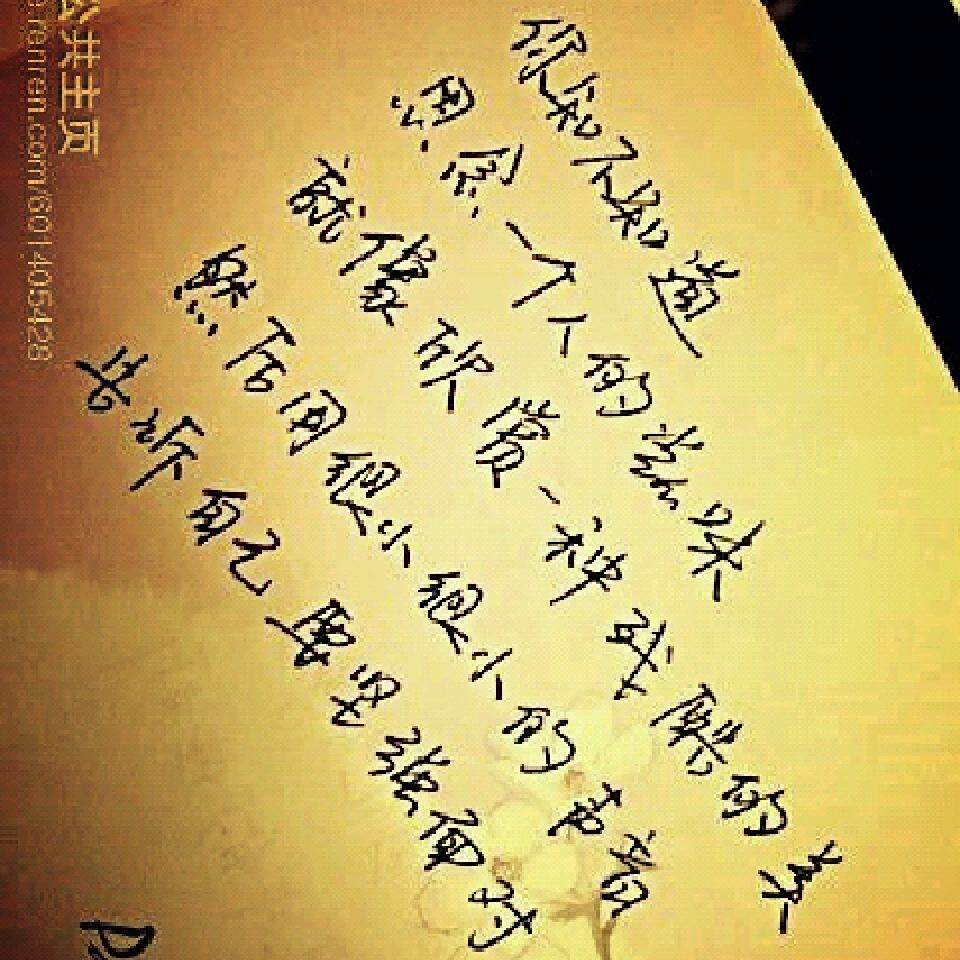 你知不知道
思念一个人的滋味
就像欣赏一种残酷的美
然后用很小很小的声音
告诉自己要坚强面对
公共主页
renren.com/601405428